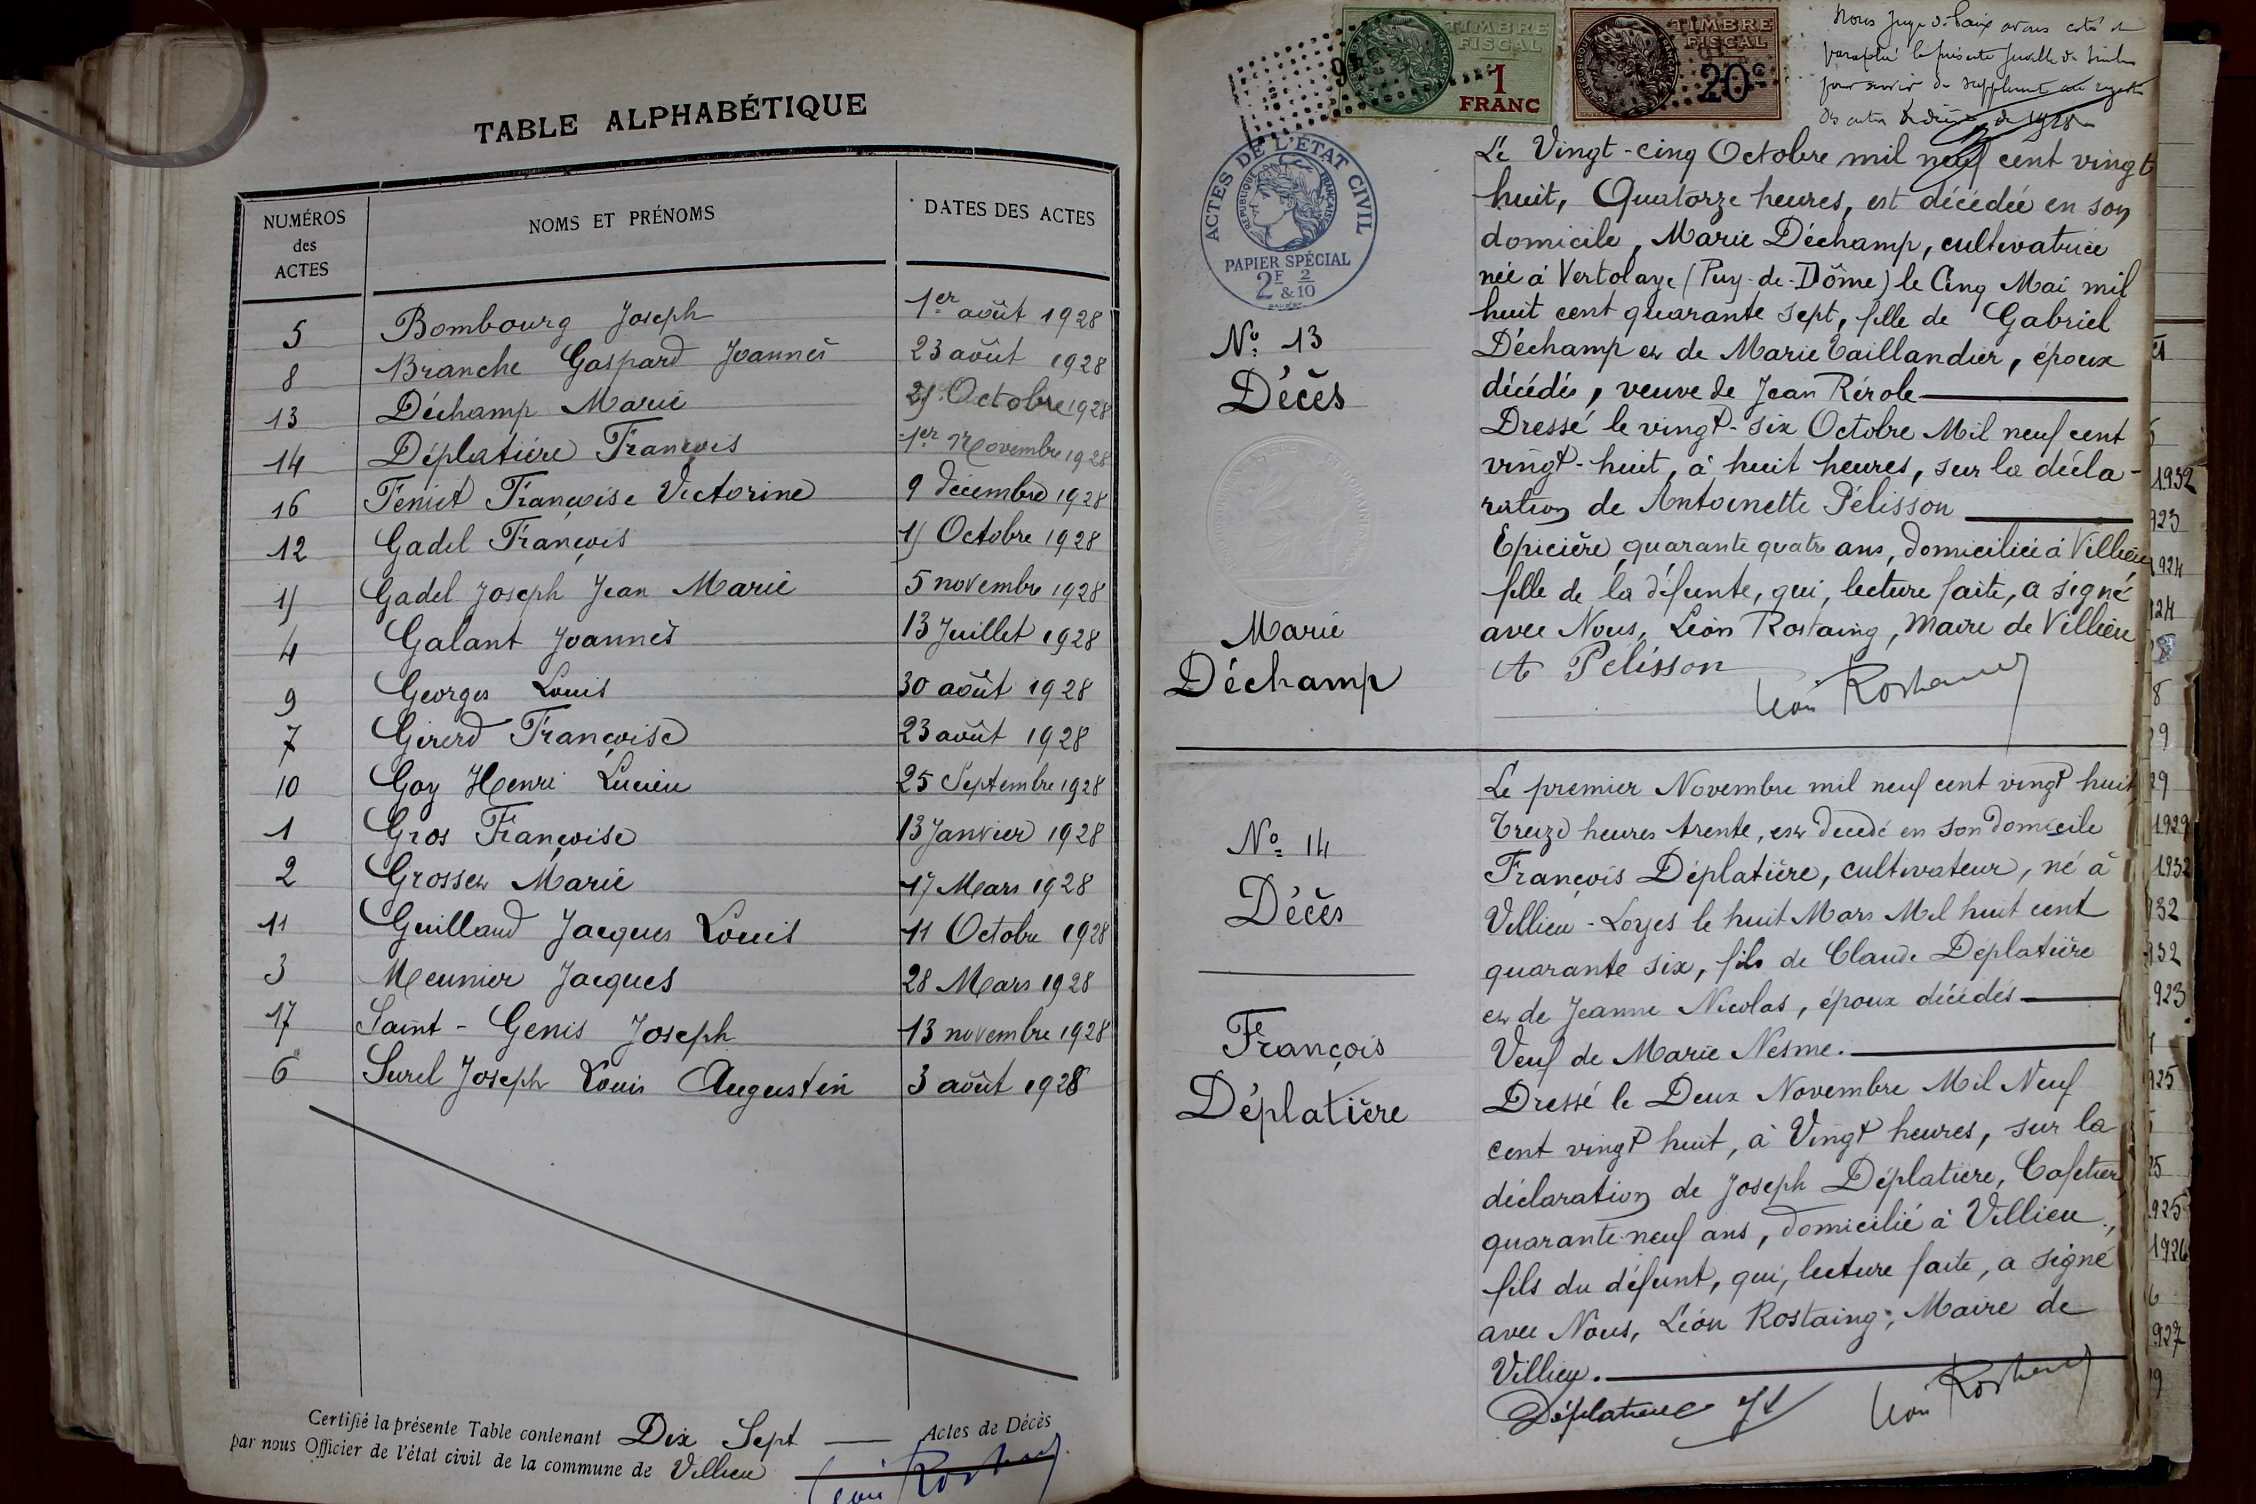 TABLE ALPHABÉTIQUE
NUMÉROS des ACTES
NOMS ET PRÉNOMS
DATES DES ACTES
5 Bombourg Joseph 1er août 1928
8 Branche Gaspard Joannès 23 août 1928
13 Déchamp Marie Octobre 1928
14 Déplatière François 1er Novembre 1928
16 Feniet Françoise Victorine 9 décembre 1928
12 Gadel François Octobre 1928
Gadel Joseph Jean Marie 5 novembre 1928
4 Galant Joannès 13 Juillet 1928
9 Georges Louis 30 août 1928
7 Girerd Françoise 23 août 1928
10 Goy Henri Lucien 25 Septembre 1928
1 Gros Françoise 13 Janvier 1928
2 Grosset Marie 17 Mars 1928
11 Guillaud Jacques Louis 11 Octobre 1928
3 Meunier Jacques 28 Mars 1928
17 Saint-Genis Joseph 13 novembre 1928
6 Surel Joseph Louis Augustin 3 août 1928
Certifié la présente Table contenant Dix Sept Actes de Décès
par nous Officier de l'état civil de la commune de Villieu
Léon Rostaing
TIMBRE FISCAL
1 FRANC
TIMBRE FISCAL
20c
Nous Juge de Paix avons coté et
paraphé la présente feuille de timbre
pour servir de supplément au registre
des actes de décès de 1928
ACTES DE L'ÉTAT CIVIL
RÉPUBLIQUE FRANÇAISE
PAPIER SPÉCIAL
2F & 2/10
No 13
Décès
Marie
Déchamp
Le Vingt-cinq Octobre mil neuf cent vingt
huit, Quatorze heures, est décédée en son
domicile, Marie Déchamp, cultivatrice
née à Vertolaye (Puy-de-Dôme) le Cinq Mai mil
huit cent quarante sept, fille de Gabriel
Déchamp et de Marie Taillandier, époux
décédés, veuve de Jean Rérole
Dressé le vingt-six Octobre Mil neuf cent
vingt-huit, à huit heures, sur la décla-
ration de Antoinette Pélisson
Epicière, quarante quatre ans, domiciliée à Villieu
fille de la défunte, qui, lecture faite, a signé
avec Nous, Léon Rostaing, Maire de Villieu
A Pélisson
Léon Rostaing
No 14
Décès
François
Déplatière
Le premier Novembre mil neuf cent vingt huit
Treize heures trente, est décédé en son Domicile
François Déplatière, cultivateur, né à
Villieu-Loyes le huit Mars Mil huit cent
quarante six, fils de Claude Déplatière
et de Jeanne Nicolas, époux décédés
Veuf de Marie Nesme.
Dressé le Deux Novembre Mil Neuf
cent vingt huit, à Vingt heures, sur la
déclaration de Joseph Déplatière, Cafetier
quarante-neuf ans, domicilié à Villieu,
fils du défunt, qui, lecture faite, a signé
avec Nous, Léon Rostaing, Maire de
Villieu.
Déplatière
Léon Rostaing